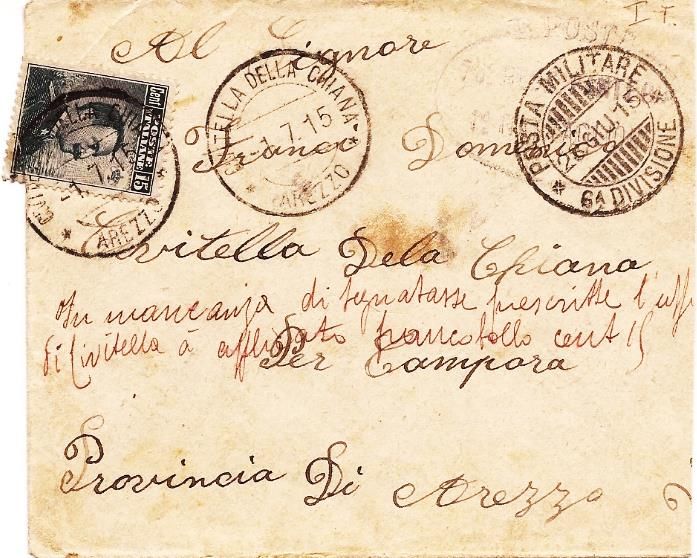 I T.
Al Signore
POSTE
POSTA MILITARE
26 GIU. 15
6A DIVISIONE
CIVITELLA DELLA CHIANA
-1.7.15
AREZZO
Cent 15
POSTE ITALIANE
CHIANA
-1.7.15
AREZZO
Franco Domenico
Civitella Dela Chiana
In mancanza di segnatasse prescritte l'uff
di Civitella à applicato francobollo cent 15
Per Campora
Provincia Di Arezzo